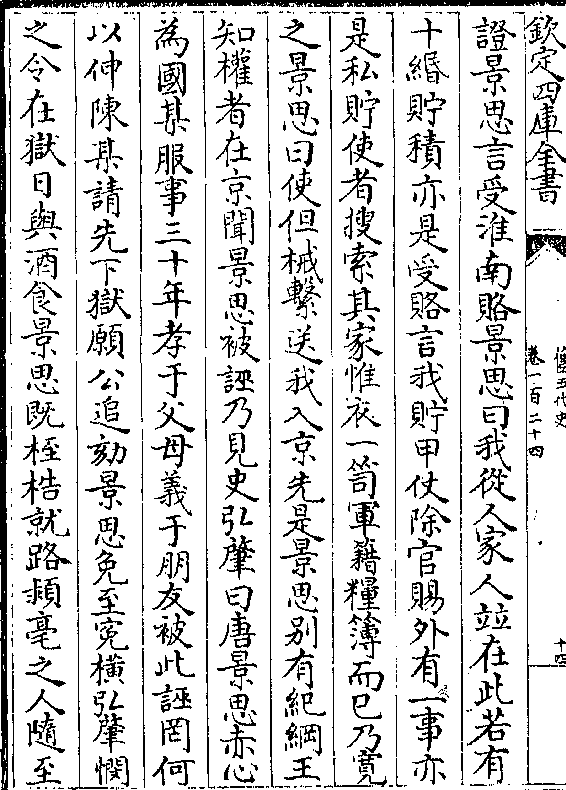 欽定四庫全書
舊五代史
卷一百二十四
十四
證景思言受淮南賂景思曰我從人家人竝在此若有
十緡貯積亦是受賂言我貯甲仗除官賜外有一事亦
是私貯使者搜索其家惟衣一笥軍籍糧簿而已乃寛
之景思曰使但械繫送我入京先是景思别有紀綱王
知權者在京聞景思被誣乃見史弘肇曰唐景思赤心
為國某服事三十年孝于父母義于朋友被此誣罔何
以伸陳某請先下獄願公追劾景思免至寃横弘肇憫
之令在獄日與酒食景思既桎梏就路潁亳之人隨至